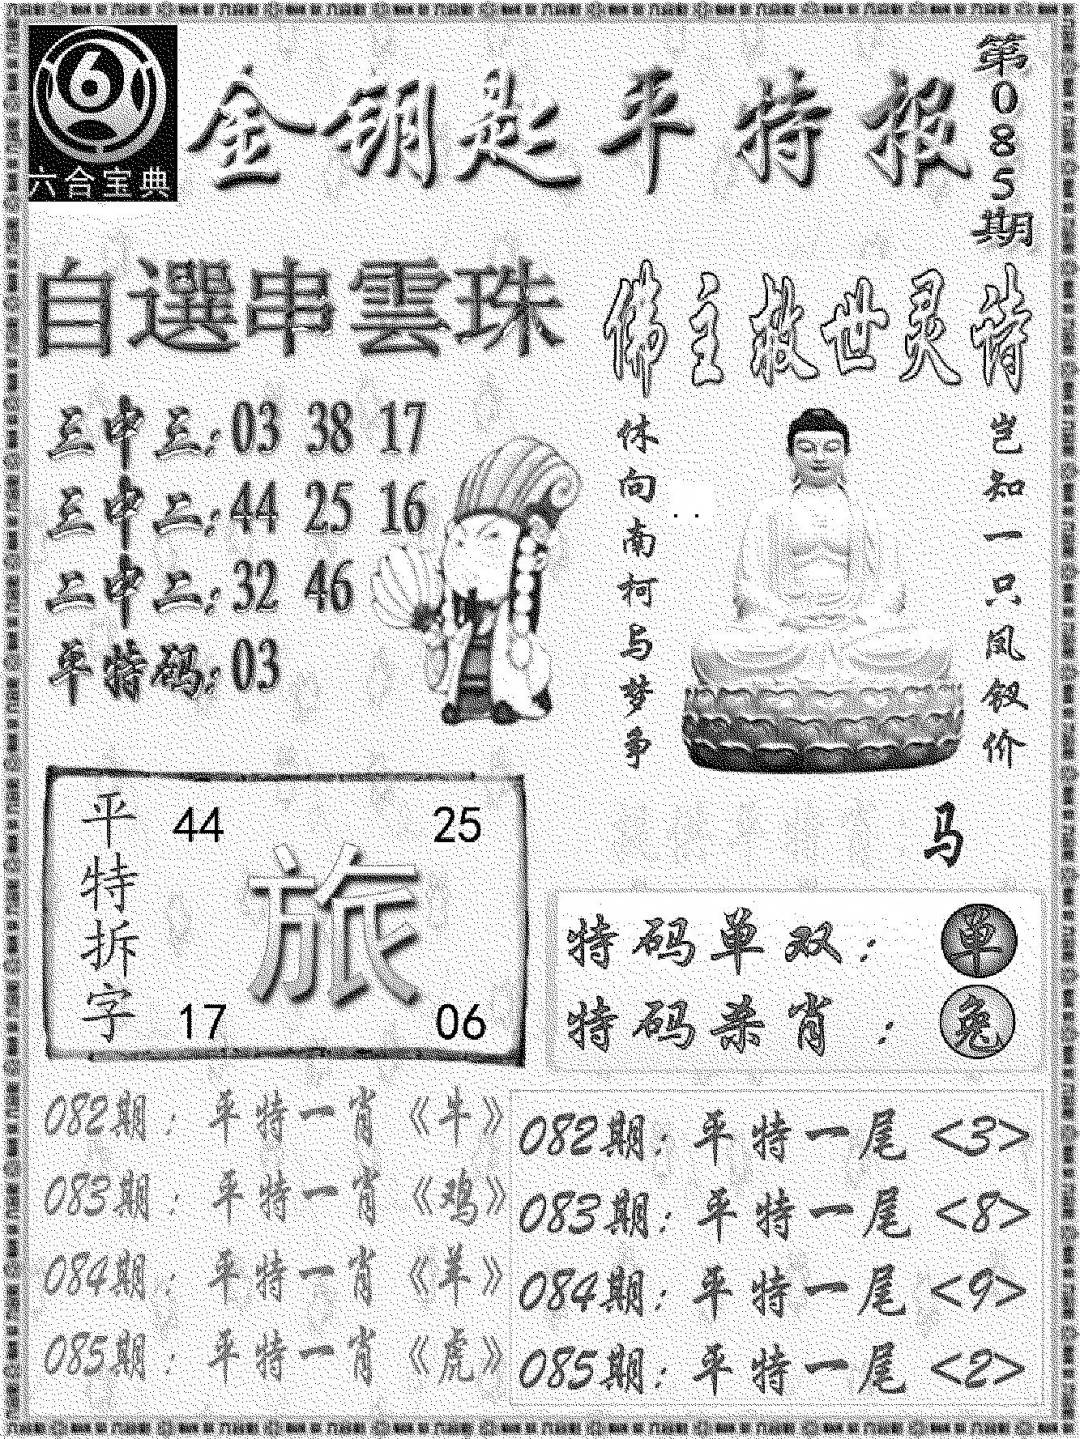 六合宝典
金钥匙平特报
第085期
自選串雲珠
三中三:03 38 17
三中二:44 25 16
二中二:32 46
平特码:03
佛主救世灵诗
岂知一只凤钗价
休向南柯与梦争
马
平特拆字
44 25
旅
17 06
特码单双: 单
特码杀肖: 兔
082期: 平特一肖《牛》
083期: 平特一肖《鸡》
084期: 平特一肖《羊》
085期: 平特一肖《虎》
082期: 平特一尾 <3>
083期: 平特一尾 <8>
084期: 平特一尾 <9>
085期: 平特一尾 <2>